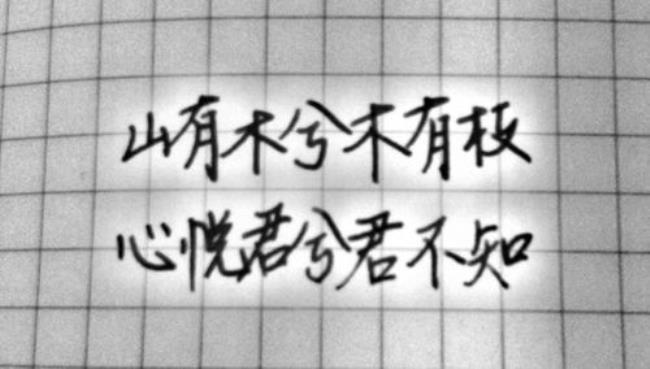 山有木兮木有板
心悦君兮君不知